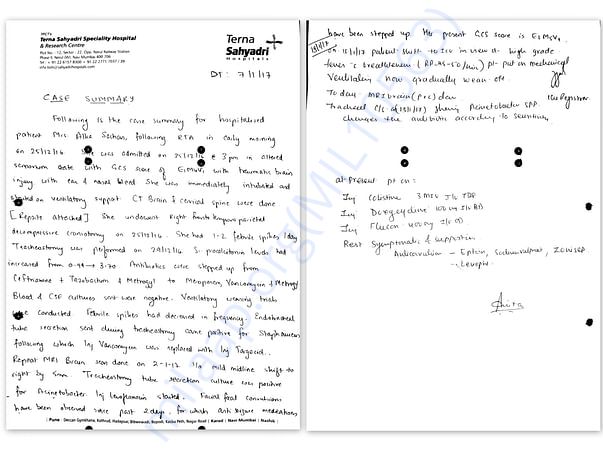 IMCT's
Terna Sahyadri Speciality Hospital
& Research Centre
Terna
Sahyadri
Hospitals
DT: 7/1/17
CASE SUMMARY
Following is the case summary for hospitalised
patient Mrs Alka Sachan, following RTA in early morning
on 25/12/16. She was admitted on 25/12/16 @ 3 pm in altered
sensorium state with GCS score of E1M5V1, with traumatic brain
injury with ear & nasal bleed. She was immediately intubated and
started on ventilatory support. CT Brain & cervical spine were done
[Reports attached] She underwent right fronto temporo parietal
decompressive craniotomy on 25/12/16. She had 1-2 febrile spikes /day.
Tracheostomy was performed on 29/12/16. Sr. procalcitonin levels had
increased from 0.94 → 3.70. Antibiotics were stepped up from
Ceftriaxone + Tazobactum & Metrogyl to Meropenem, Vancomycin & Metrogyl
Blood & CSF cultures sent were negative. Ventilatory weaning trials
were conducted. Febrile spikes had decreased in frequency. Endotracheal
tube secretion sent during tracheostomy came positive for Staph aureus
following which Inj Vancomycin was replaced with Inj Targocid.
Repeat MRI Brain scan done on 2-1-17 mild midline shift to
right by 5mm. Tracheostomy tube secretion culture was positive
for Acinetobacter Inj started. Facial focal convulsions
have been observed since past 2 days, for which medications
| Pune : Deccan Gymkhana, Kothrud, Hadapsar, Bibwewadi, Bopodi, Kasba Peth, Nagar Road | Karad | Navi Mumbai | Nashik |
have been stepped up. Her present GCS score is E2M5VT
on patient shift to ICU in view of high grade
fever c breathlessness (RR 45-50/min) pt put on mechanical
Ventilation now gradually wean off.
Today MRI brain (P+C) done
Tracheal c/s of showing Acinetobacter SPP.
changes the antibiotic according to sensitivity
ICU Registrar
at present pt on:
Inj Colistine 3 MIU IV TDS
Inj Doxycycline 100 mg IV BD
Inj Flucon 400mg IV OD
Rest Symptomatic & supportive
Anticonvulsion - Eptoin, Sodium valproate,
- Levepil
milaap.org(MIL110563)